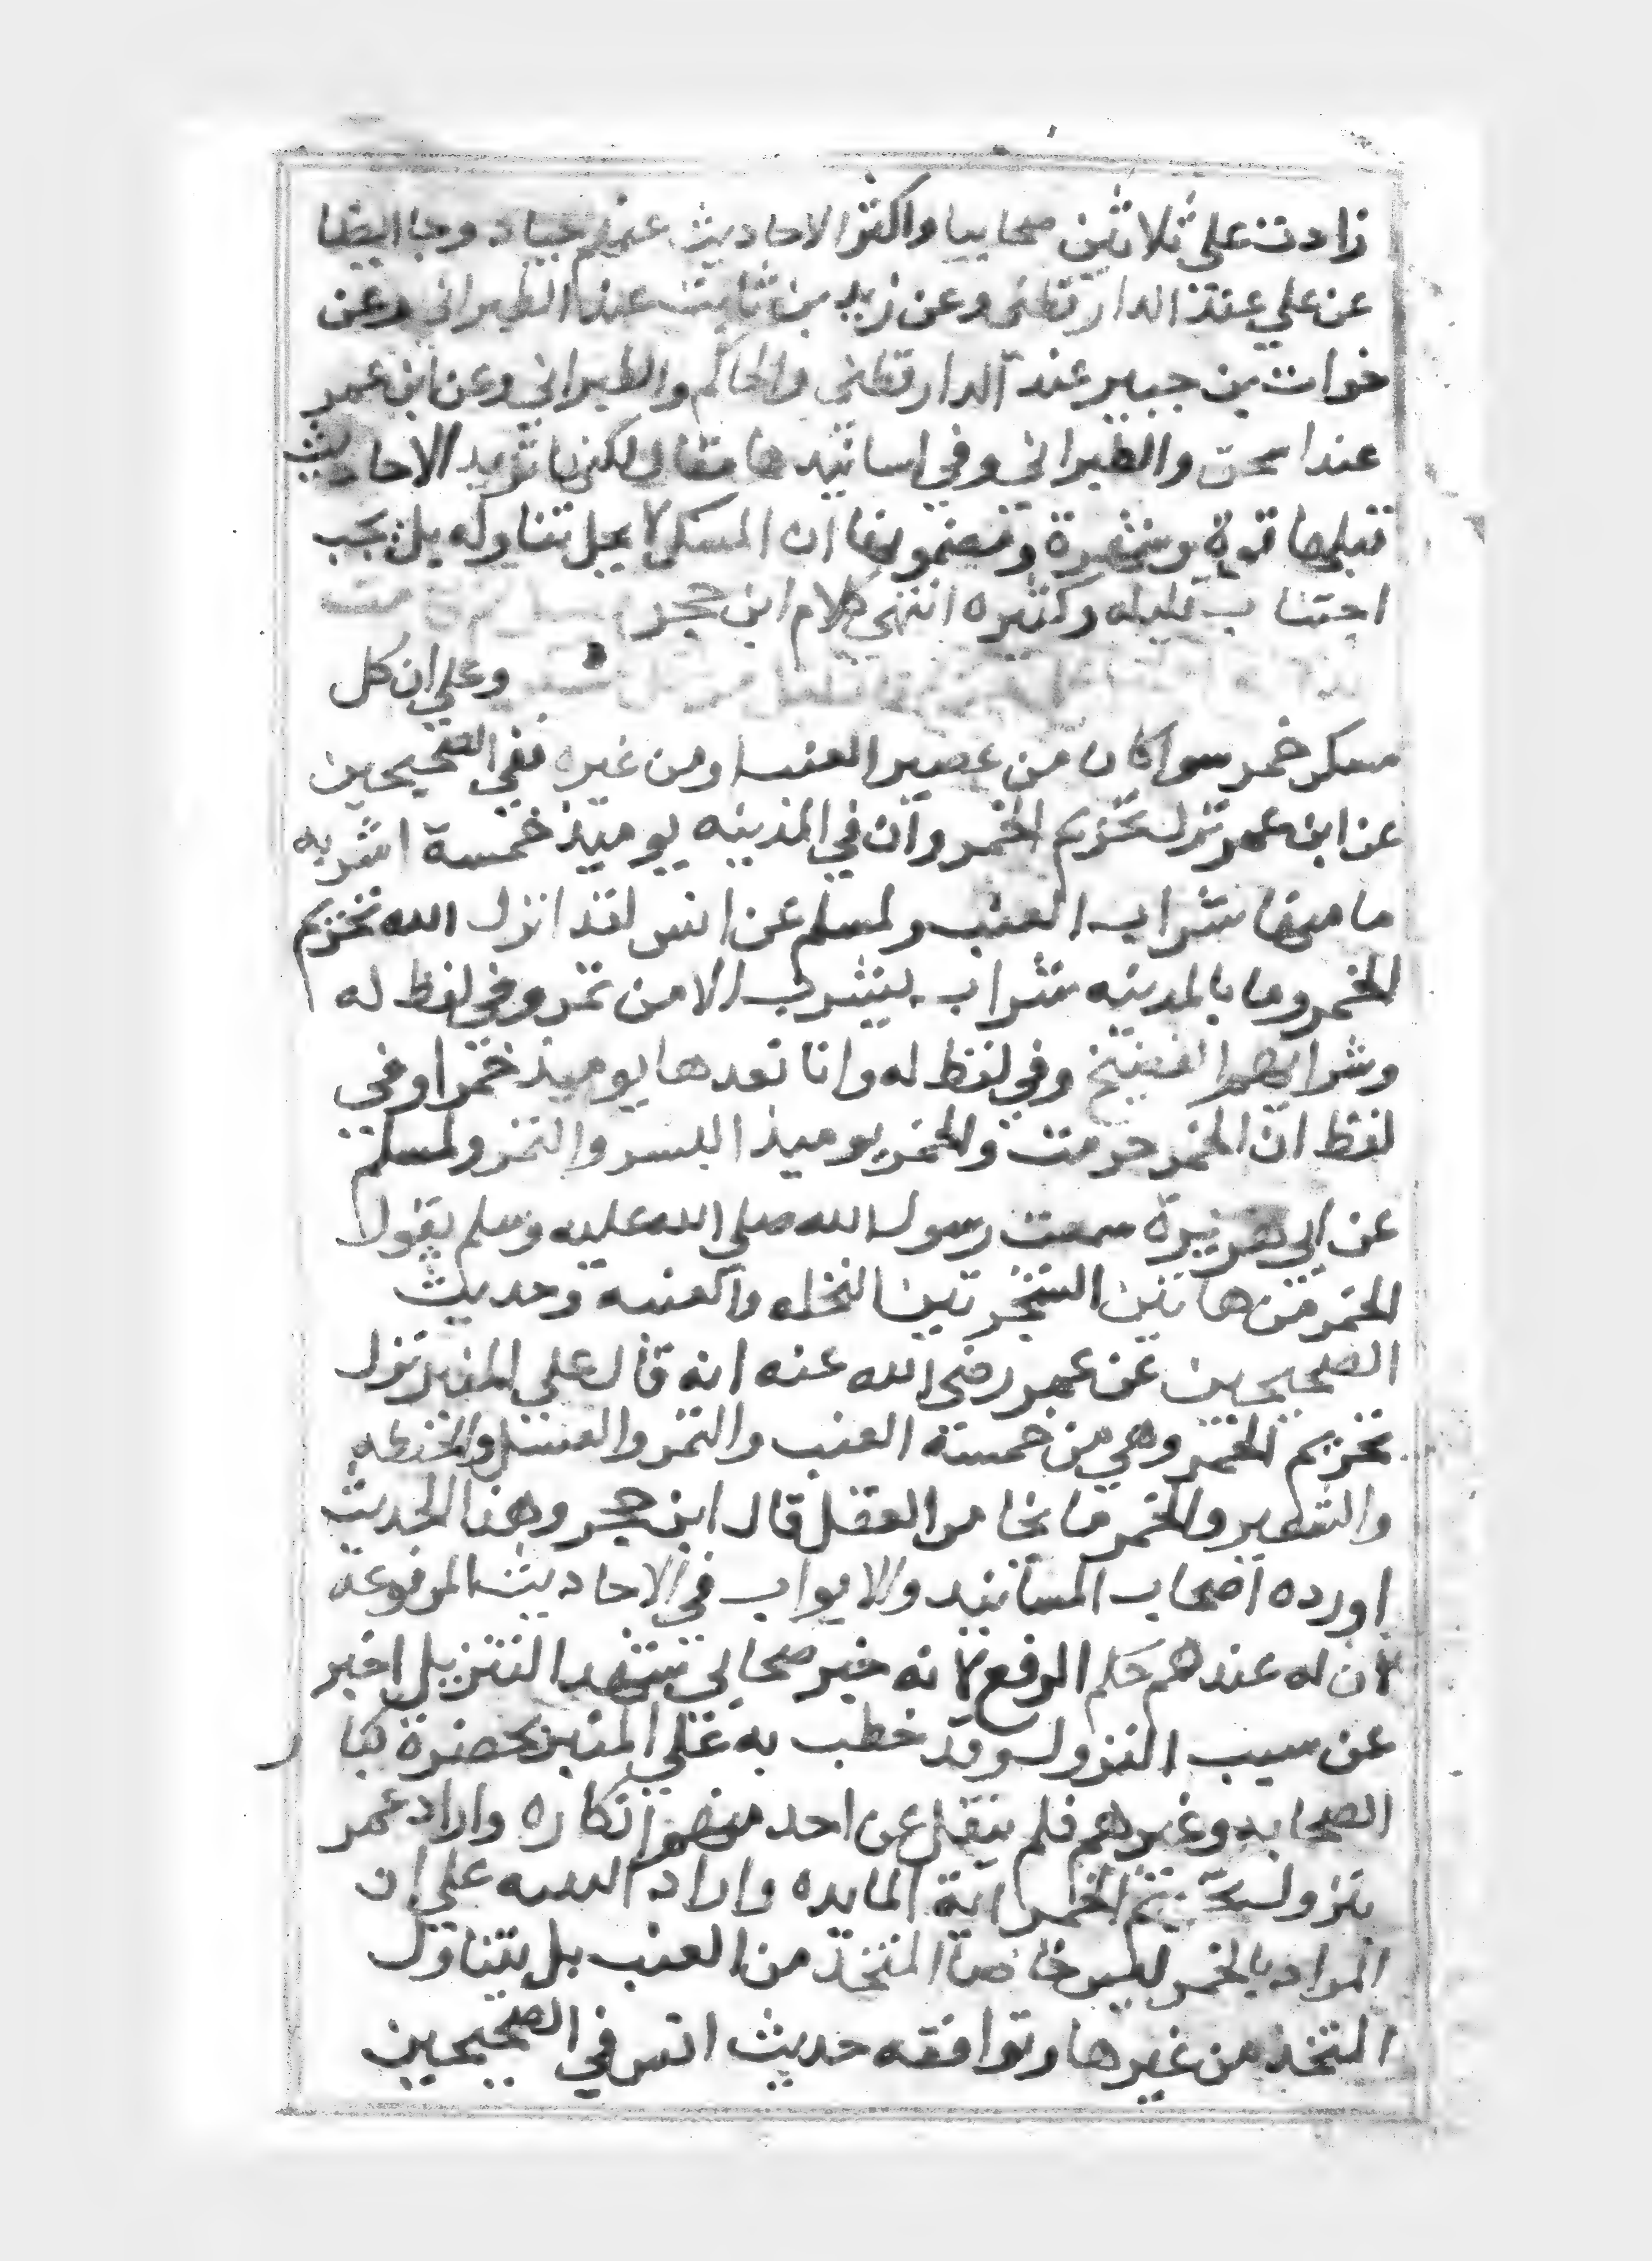 زادت علي ثلاثين صحابيا واكثر الاحاديث عنهم جياد وجا ايضا
عن علي عند الدارقطني وعن زيد بن ثابت عند الطبراني وعن
خوات بن جبير عند الدارقطني والحاكم والطبراني وعن ابن عمر
عند اسحق والطبراني وفي اسانيدها مقال لكنها تزيد الاحاديث
قبلها قوة وشهرة ومضمونها ان المسكر لا يحل تناوله بل يجب
اجتناب قليله وكثيره انتهي كلام ابن حجر
وعلي ان كل
مسكر خمر سوا كان من عصير العنب او من غيره ففي الصحيحين
عن ابن عمر نزل تحريم الخمر وان في المدينه يوميذ خمسة اشربه
ما فيها شراب العنب ولمسلم عن انس لقد انزل الله تحريم
الخمر وما بالمدينه شراب يشرب الا من تمر وفي لفظ له
وشرابهم الفضيخ وفي لفظ له وانا نعدها يوميذ خمرا وفي
لفظ ان الخمر حرمت والخمر يوميذ البسر والتمر ولمسلم
عن ابي هريرة سمعت رسول الله صلي الله عليه وسلم يقول
الخمر من هاتين الشجرتين النخله والعنبه وحديث
الصحيحين عن عمر رضي الله عنه انه قال علي المنبر نزل
تحريم الخمر وهي من خمسة العنب والتمر والعسل والحنطه
والشعير والخمر ما خامر العقل قال ابن حجر وهذا الحديث
اورده اصحاب المسانيد والابواب في الاحاديث المرفوعة
لان له عندهم حكم الرفع لانه خبر صحابي شهد التنزيل اخبر
عن سبب النزول وقد خطب به علي المنبر بحضرة كبار
الصحابه وغيرهم فلم ينقل عن احد منهم انكاره واراد عمر
بنزول تحريم الخمر اية المايده واراد التنبيه علي ان
المراد بالخمر ليس خاصا المتخذ من العنب بل يتناول
المتخذ من غيرها وتوافقه حديث انس في الصحيحين